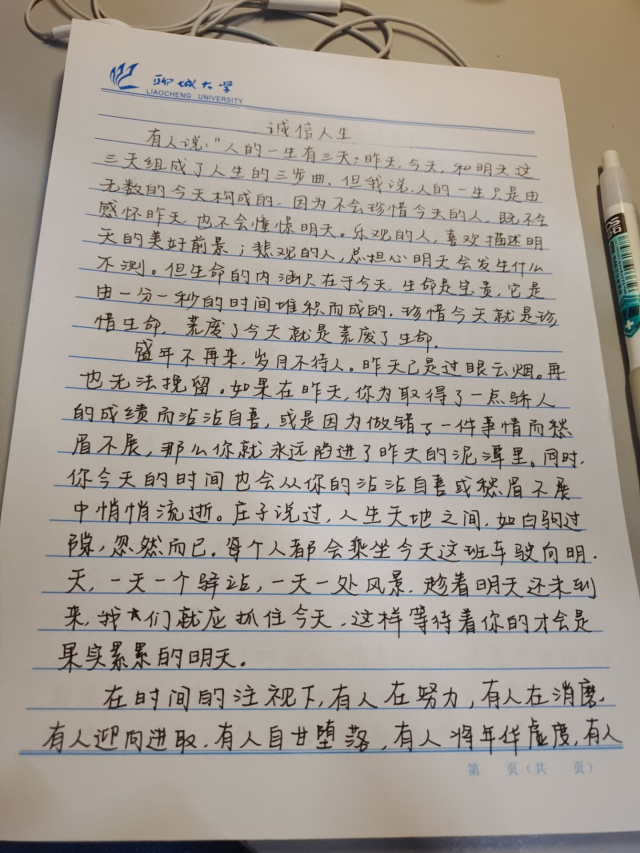 聊城大学
LIAOCHENG UNIVERSITY
诚信人生
有人说:"人的一生有三天:昨天,今天,和明天这
三天组成了人生的三步曲,但我说,人的一生只是由
无数的今天构成的,因为不会珍惜今天的人,既不会
感怀昨天,也不会憧憬明天。乐观的人,喜欢描述明
天的美好前景;悲观的人,总担心明天会发生什么
不测。但生命的内涵只在于今天,生命是宝贵,它是
由一分一秒的时间堆积而成的,珍惜今天就是珍
惜生命,荒度了今天就是荒废了生命.
盛年不再来,岁月不待人。昨天已是过眼云烟。再
也无法挽留。如果在昨天,你为取得了一点骄人
的成绩而沾沾自喜,或是因为做错了一件事情而愁
眉不展,那么你就永远陷进了昨天的泥潭里。同时,
你今天的时间也会从你的沾沾自喜或愁眉不展
中悄悄流逝。庄子说过,人生天地之间,如白驹过
隙,忽然而已。每个人都会乘坐今天这班车驶向明
天,一天一个驿站,一天一处风景,趁着明天还未到
来,我们就应抓住今天,这样等待着你的才会是
果实累累的明天。
在时间的注视下,有人在努力,有人在消磨,
有人迎向进取,有人自甘堕落,有人将年华虚度,有人
第 页(共 页)